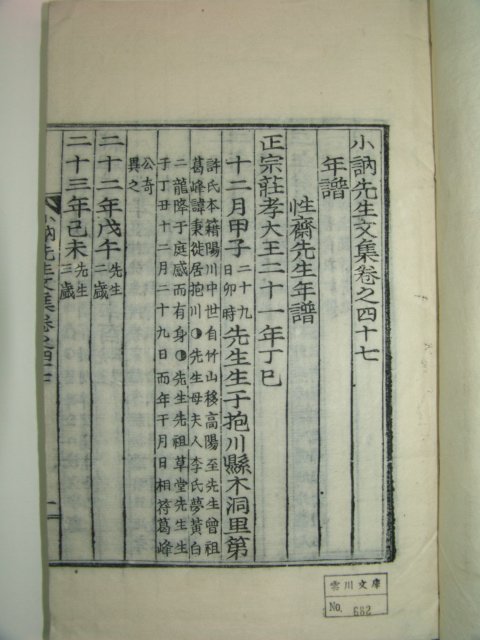 小訥先生文集卷之四十七
年譜
性齋先生年譜
正宗莊孝大王二十一年丁巳
十二月甲子二十九日卯時先生生于抱川縣木洞里第
許氏本籍陽川中世自竹山移高陽至先生曾祖
葛峰諱秉徙居抱川◑先生母夫人李氏夢黃白
二龍降于庭感而有身◑先生先祖草堂先生生
于丁丑十二月二十九日而年干月日相符葛峰
公奇
異之
二十二年戊午先生二歲
二十三年己未先生三歲
小訥先生文集卷之四十七
雲川文庫
No. 682